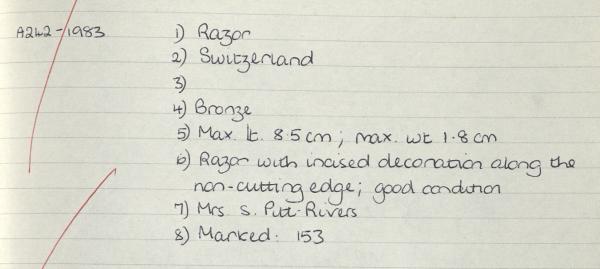 A242-1983
1) Razor
2) Switzerland
3)
4) Bronze
5) Max. lt. 8.5 cm; max. wt 1.8 cm
6) Razor with incised decoration along the
non-cutting edge; good condition
7) Mrs. S. Pitt-Rivers
8) Marked: 153